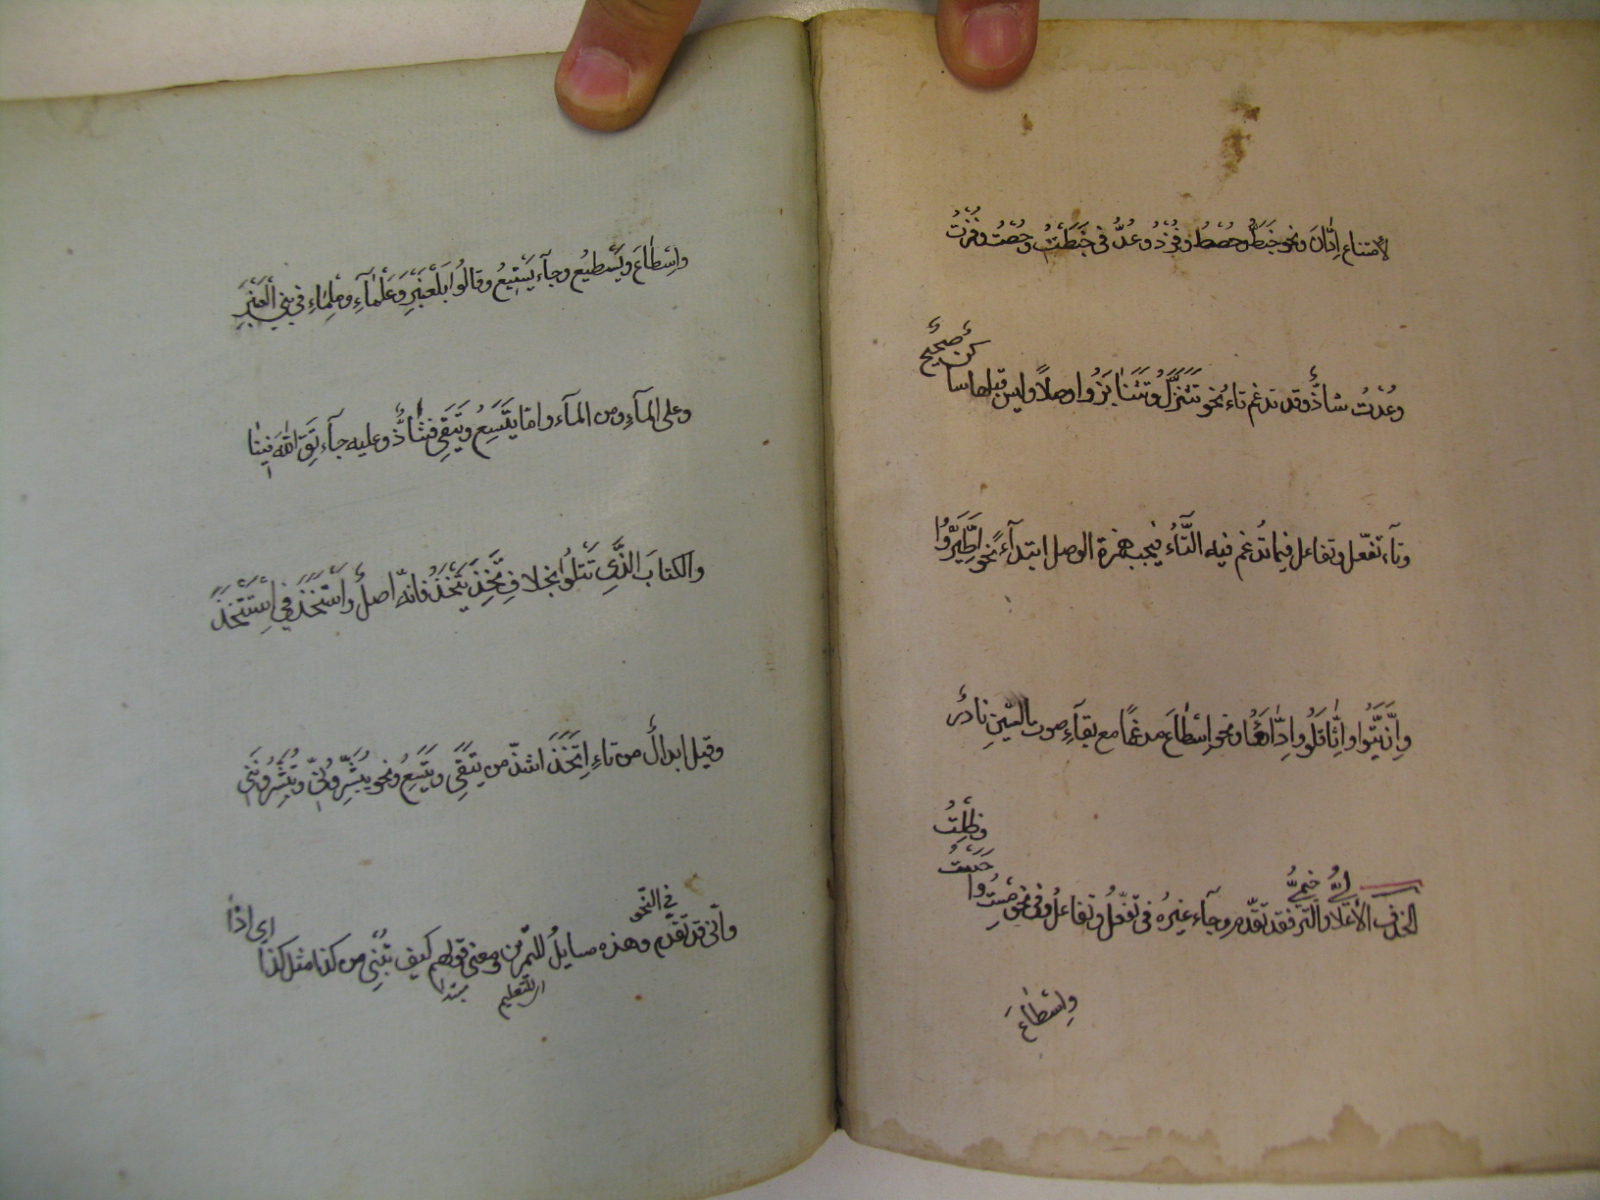 لامتناع اِدّانَ ونحو خَبَطُّ وحُصْطُ وفُزْدُ وعُدُّ فى خَبَطْتُ وحُصْتُ وفُزْتُ
وعُدْتُ شاذٌّ وقد تدغم تاء نحو تَتَنَزَّلُ وتَتَنَابَزُوا وصلاً وليس قبلها سا
كن صحيحٌ
وتاء تفعّل وتفاعل فيما تدغم فيه التّاءُ فيجب همزة الوصل ابتدآءً نحو اِطَّيَّرُوا
وازَّيَّنُوا واثّاقلُوا وادّارَءُوا ونحو اِسْطّاعَ مدغمًا مع بقآءِ صوت السّين نادرٌ
الحذف الأعلالىُّ والترخيمىُّ فقد تقدّم وجآء غيرُه فى تفعّلُ وتفاعلُ وفى نحو مِسْتُ وا
حَسْتُ
وظِلْتُ
واسْطَاعَ
واِسْطَاعَ ويَسْطيعُ وجآء يَسْتيعُ وقالُوا بَلْعَنْبَرِ وعَلْمَآءِ ومِلْمَاءِ فى بنى الْعَنْبَرِ
وعلى المآءِ ومن المآء وامّا يَتَسِعُ ويَتَقِى فشاذٌّ وعليه جآء تَقِ اللّٰهَ فينا
والكتابَ الَّذِى تَتْلُوا بخلاف تَخِذَ يَتْخَذُ فانّه اصلٌ واسْتَخَذَ فى اِسْتَتْخَذَ
وقيل ابدالٌ من تاءِ اِتَّخَذَ اشذّ من يَتَقِى ويَتَسِعُ ونحو تُبَشِّرُونِّى وتُبَشِّرُونِى
فى النّحو
وانّى قد تقدّم وهذه مسايلُ للتّمرّن ومعنى قولهم كيف تَبْنِى من كذا مثل كذا
اى اذا
اى للتّعليم
مبتدا